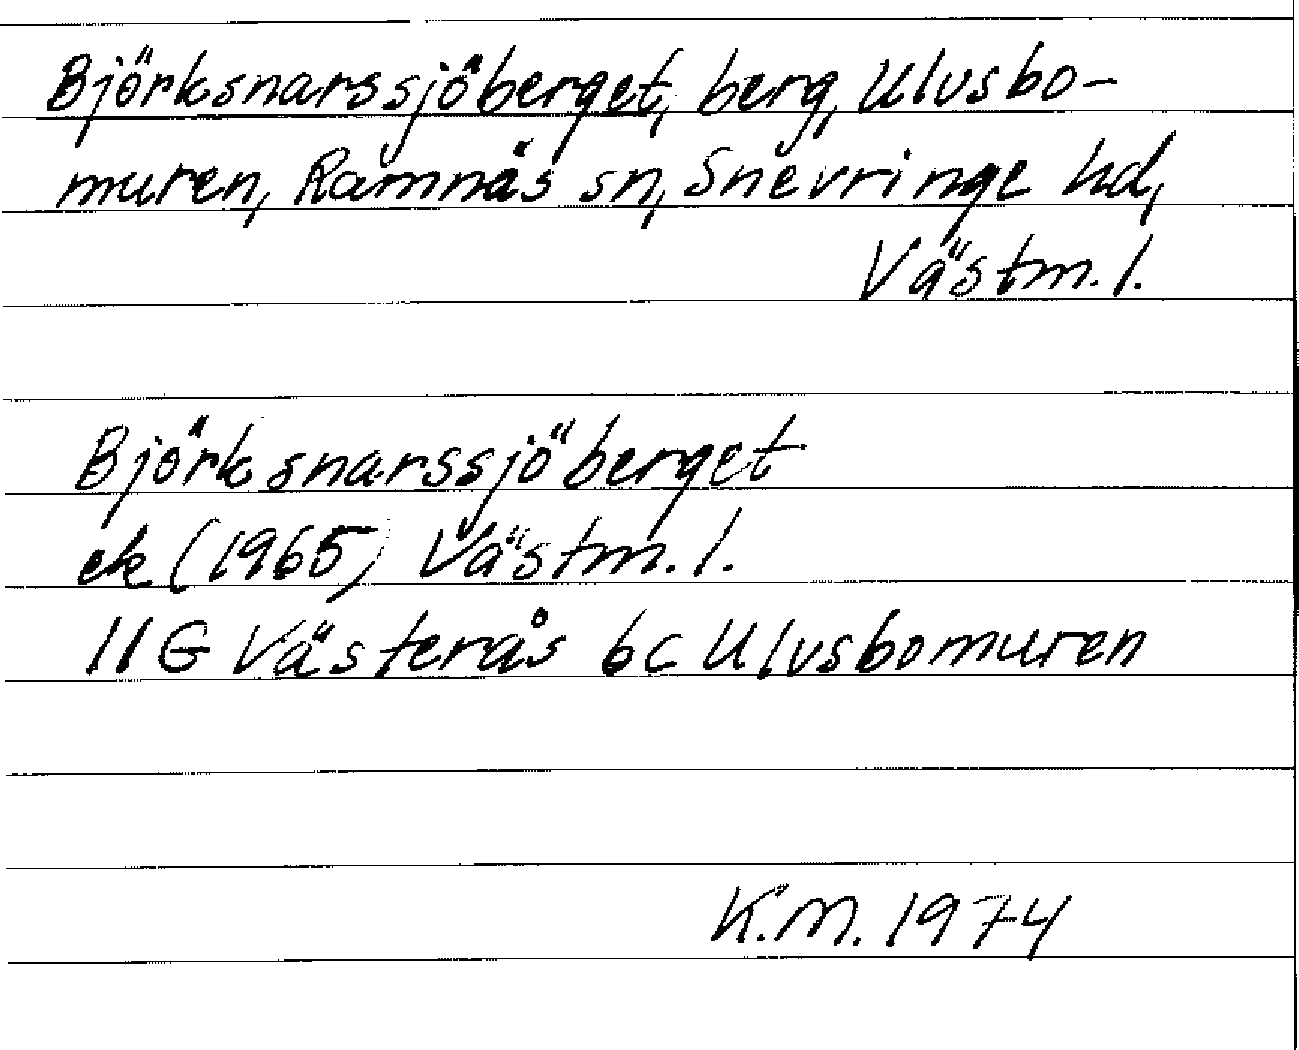 Björksnarssjöberget, berg, Ulvsbo-
muren, Ramnäs sn, Snevringe hd,
Västm. l.
Björksnarssjöberget
ek (1965) Västm. l.
11G Västerås 6c Ulvsbomuren
K.M. 1974